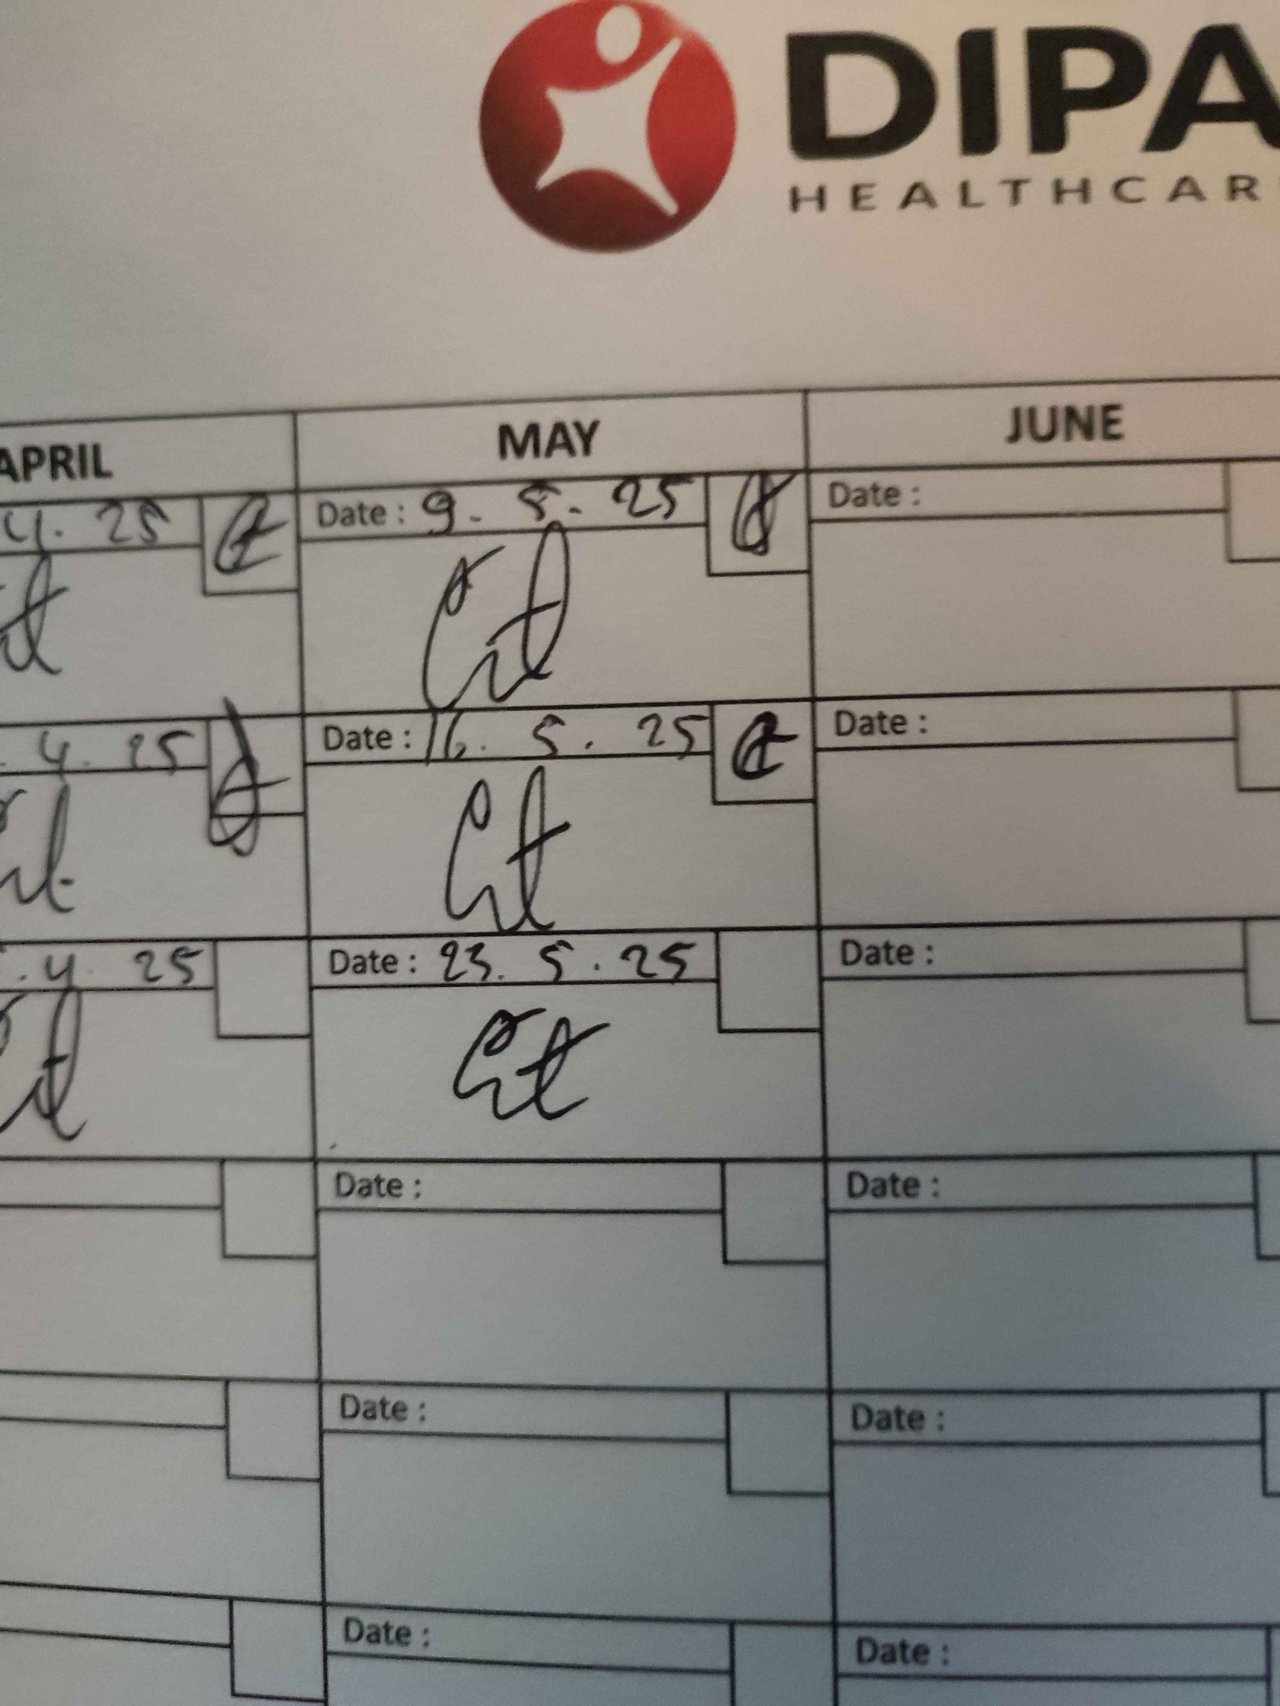 DIPA
HEALTHCAR
APRIL MAY JUNE
4. 25 Date : 9. 5. 25 Date :
. 4. 25 Date : 16. 5. 25 Date :
. 4. 25 Date : 23. 5. 25 Date :
Date : Date :
Date : Date :
Date : Date :